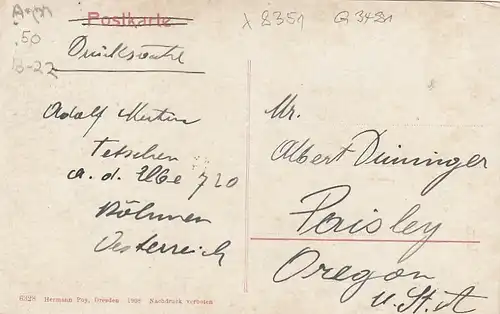 Postkarte
Drucksache
.50
B-22
X 8351 G 3481
Adolf
Tetschen
a. d. Elbe 720
Böhmen
Oesterreich
Mr.
Albert Dinninger
Paisley
Oregon
U. St. A
6928 Hermann Poy, Dresden 1908 Nachdruck verboten